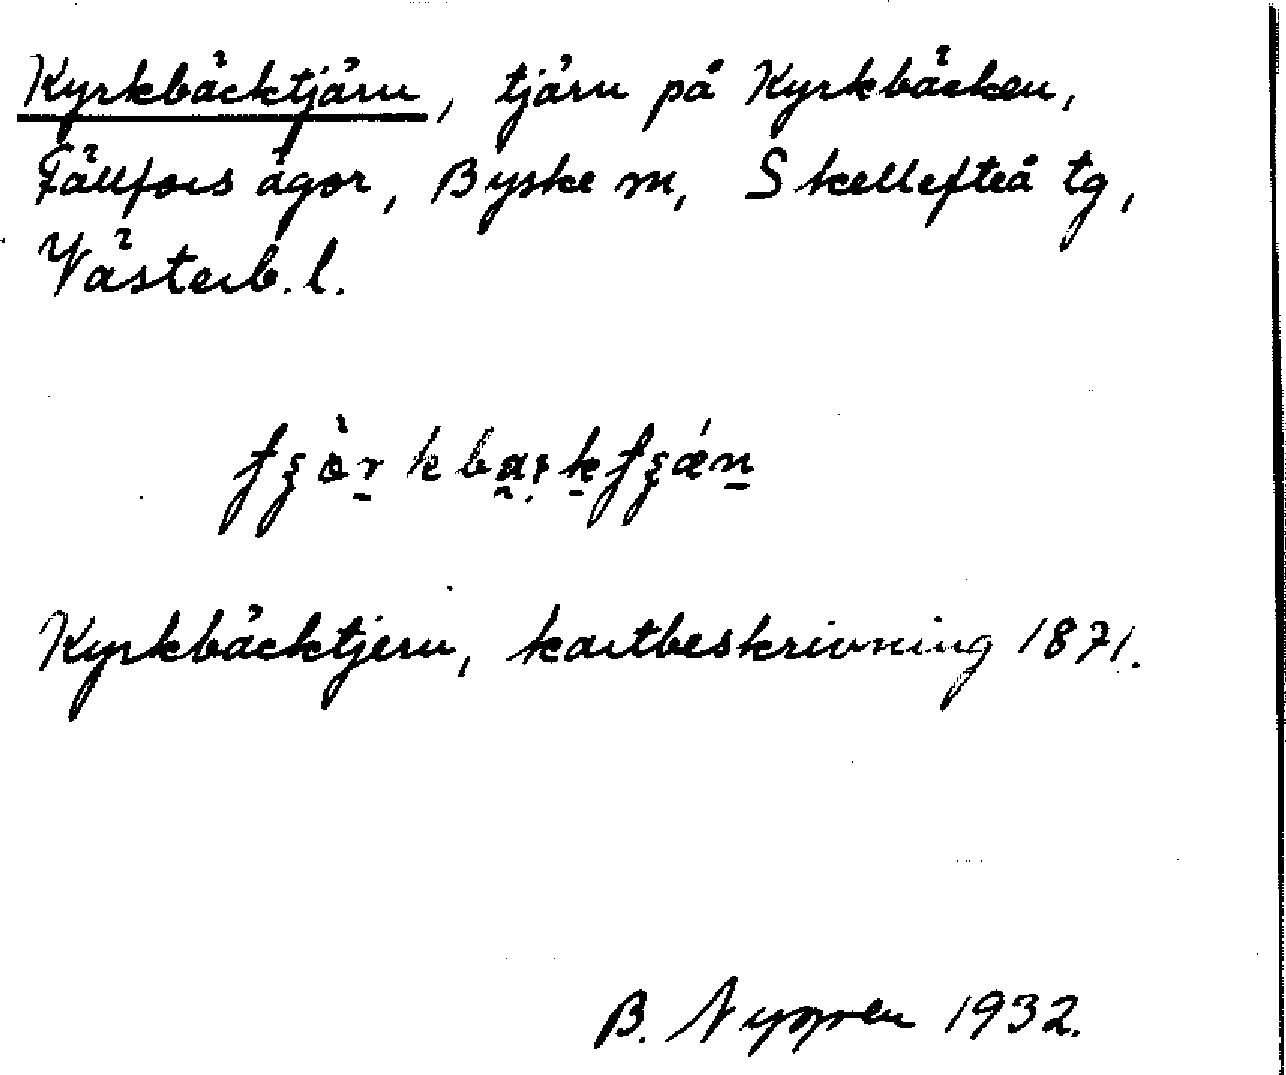 Kyrkbäcktjärn, tjärn på Kyrkbäcken,
Fällfors ägor, Byske m, Skellefteå tg,
Västerb. l.
Kyrkbäcktjern, kartbeskrivning 1871.
B. Nygren 1932.